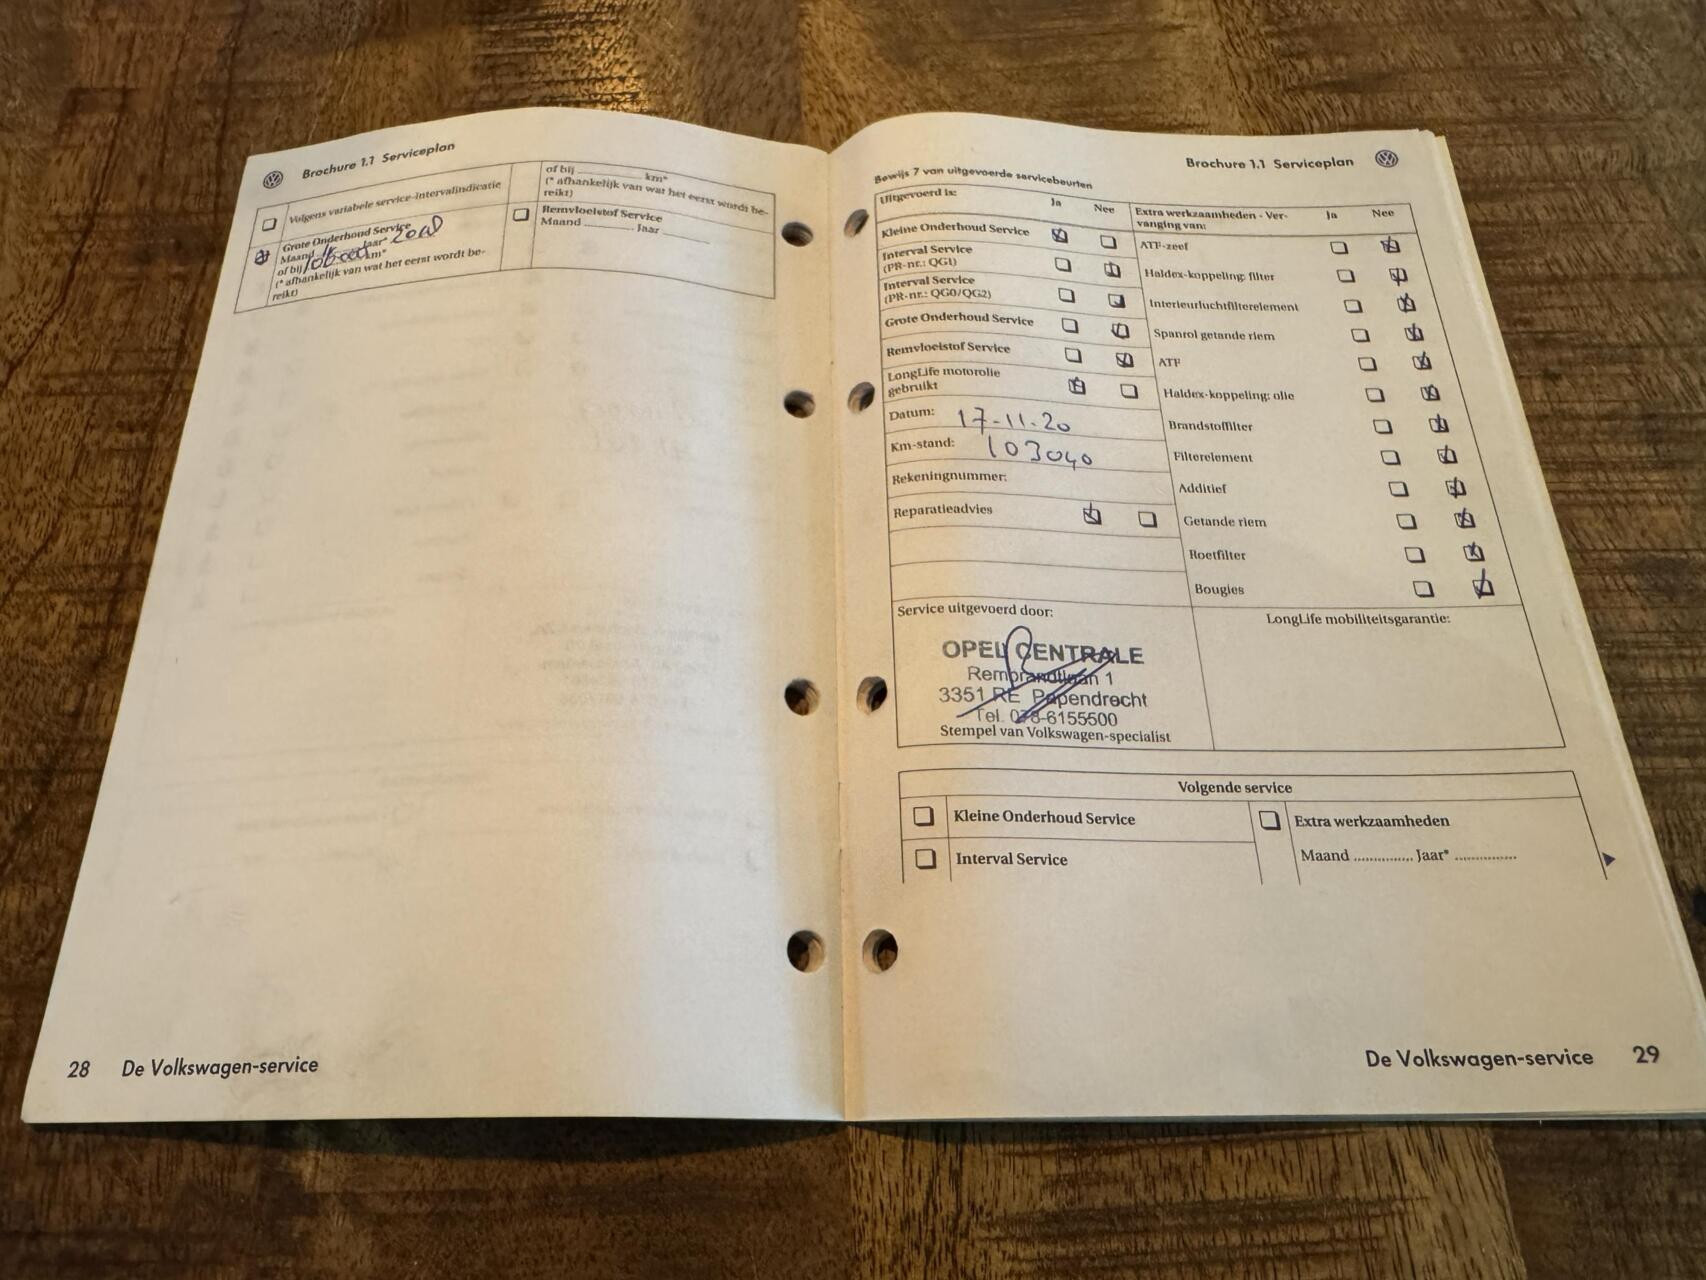 Brochure 1.1 Serviceplan
Volgens variabele service-intervalindicatie
Grote Onderhoud Service
Maand Jaar*
of bij km*
(* afhankelijk van wat het eerst wordt be-
reikt)
of bij .............. km*
(* afhankelijk van wat het eerst wordt be-
reikt)
Remvloeistof Service
Maand ............ Jaar ............
28 De Volkswagen-service
Brochure 1.1 Serviceplan
Bewijs 7 van uitgevoerde servicebeurten
Uitgevoerd is: Ja Nee
Kleine Onderhoud Service
Interval Service
(PR-nr.: QG1)
Interval Service
(PR-nr.: QG0/QG2)
Grote Onderhoud Service
Remvloeistof Service
LongLife motorolie
gebruikt
Datum: 17-11-20
Km-stand: 103040
Rekeningnummer:
Reparatieadvies
Extra werkzaamheden - Ver-
vanging van: Ja Nee
ATF-zeef
Haldex-koppeling: filter
Interieurluchtfilterelement
Spanrol getande riem
ATF
Haldex-koppeling: olie
Brandstoffilter
Filterelement
Additief
Getande riem
Roetfilter
Bougies
Service uitgevoerd door:
OPEL CENTRALE
Rembrandtlaan 1
3351 RE Papendrecht
Tel. 078-6155500
Stempel van Volkswagen-specialist
LongLife mobiliteitsgarantie:
Volgende service
Kleine Onderhoud Service
Interval Service
Extra werkzaamheden
Maand .............. Jaar* ..............
De Volkswagen-service 29